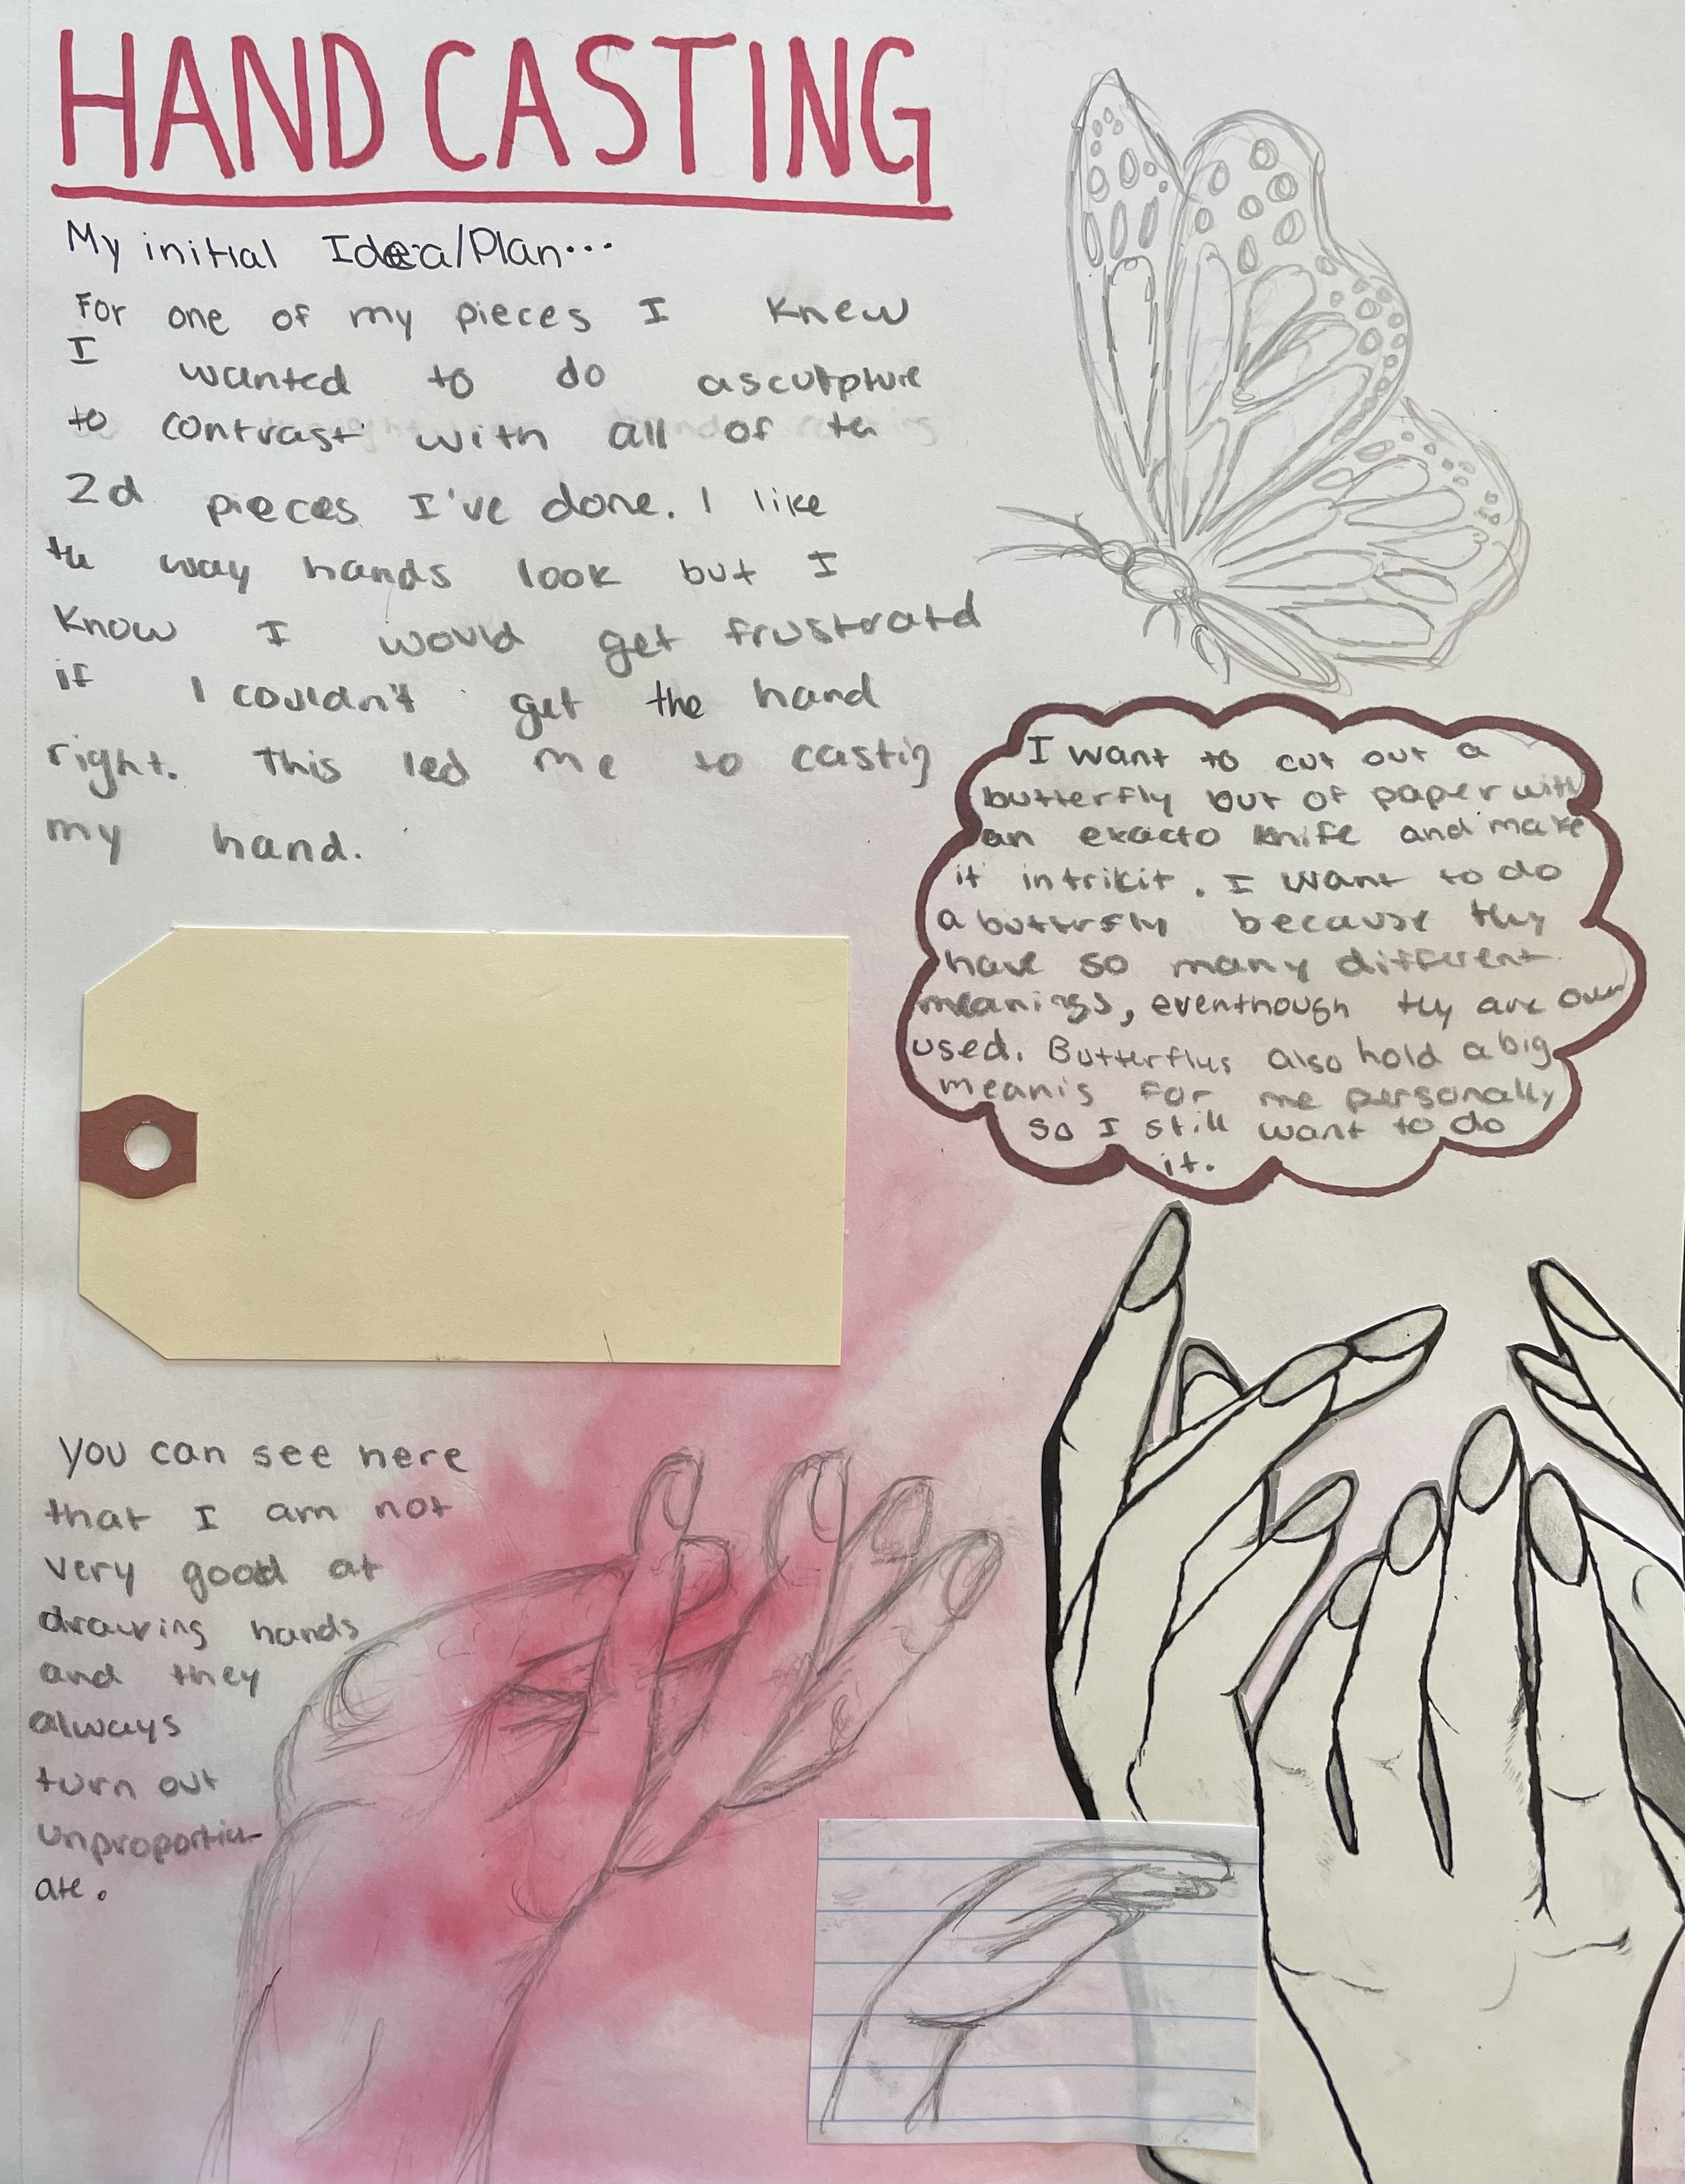 HAND CASTING
My initial Idea/Plan...
For one of my pieces I knew
I wanted to do a sculpture
to contrast with all of th
2d pieces I've done. I like
th way hands look but I
know I would get frustratd
if I couldn't get the hand
right. This led me to castig
my hand.
I want to cut out a
butterfly out of paper with
an exacto knife and make
it intrikit. I want to do
a butterfly because thy
have so many different
meanings, eventhough thy are over
used. Butterflys also hold a big
meanis for me personally
so I still want to do
it.
You can see here
that I am not
very good at
drawing hands
and they
always
turn out
unproportion
ate.